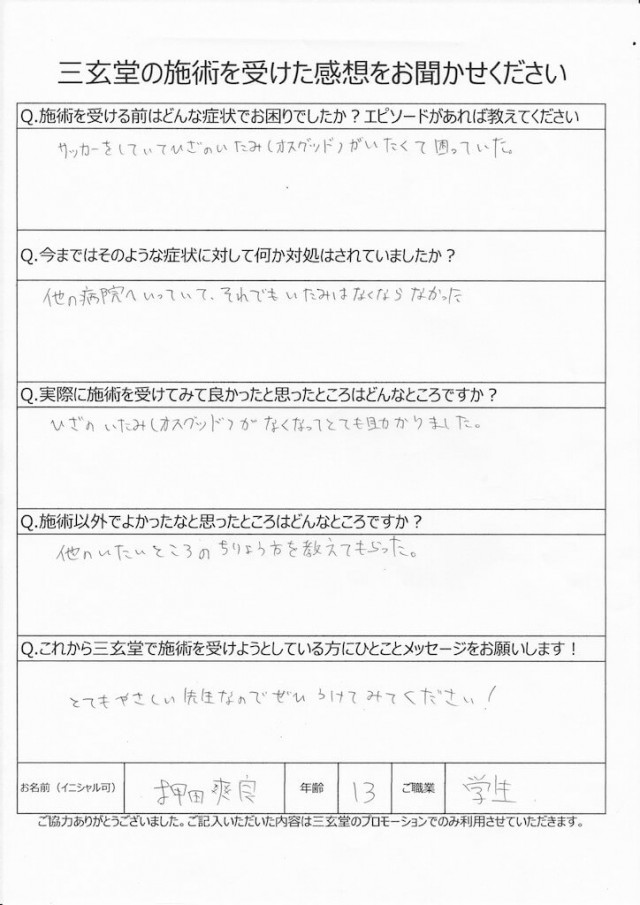 三玄堂の施術を受けた感想をお聞かせください
Q.施術を受ける前はどんな症状でお困りでしたか？エピソードがあれば教えてください
サッカーをしていてひざのいたみ(オスグッド)がいたくて困っていた。
Q.今まではそのような症状に対して何か対処はされていましたか？
他の病院へいっていて、それでもいたみはなくならなかった
Q.実際に施術を受けてみて良かったと思ったところはどんなところですか？
ひざのいたみ(オスグッド)がなくなってとても助かりました。
Q.施術以外でよかったなと思ったところはどんなところですか？
他のいたいところのちりょう方を教えてもらった。
Q.これから三玄堂で施術を受けようとしている方にひとことメッセージをお願いします！
とてもやさしい先生なのでぜひうけてみてください！
お名前（イニシャル可） 押田爽良 年齢 13 ご職業 学生
ご協力ありがとうございました。ご記入いただいた内容は三玄堂のプロモーションでのみ利用させていただきます。